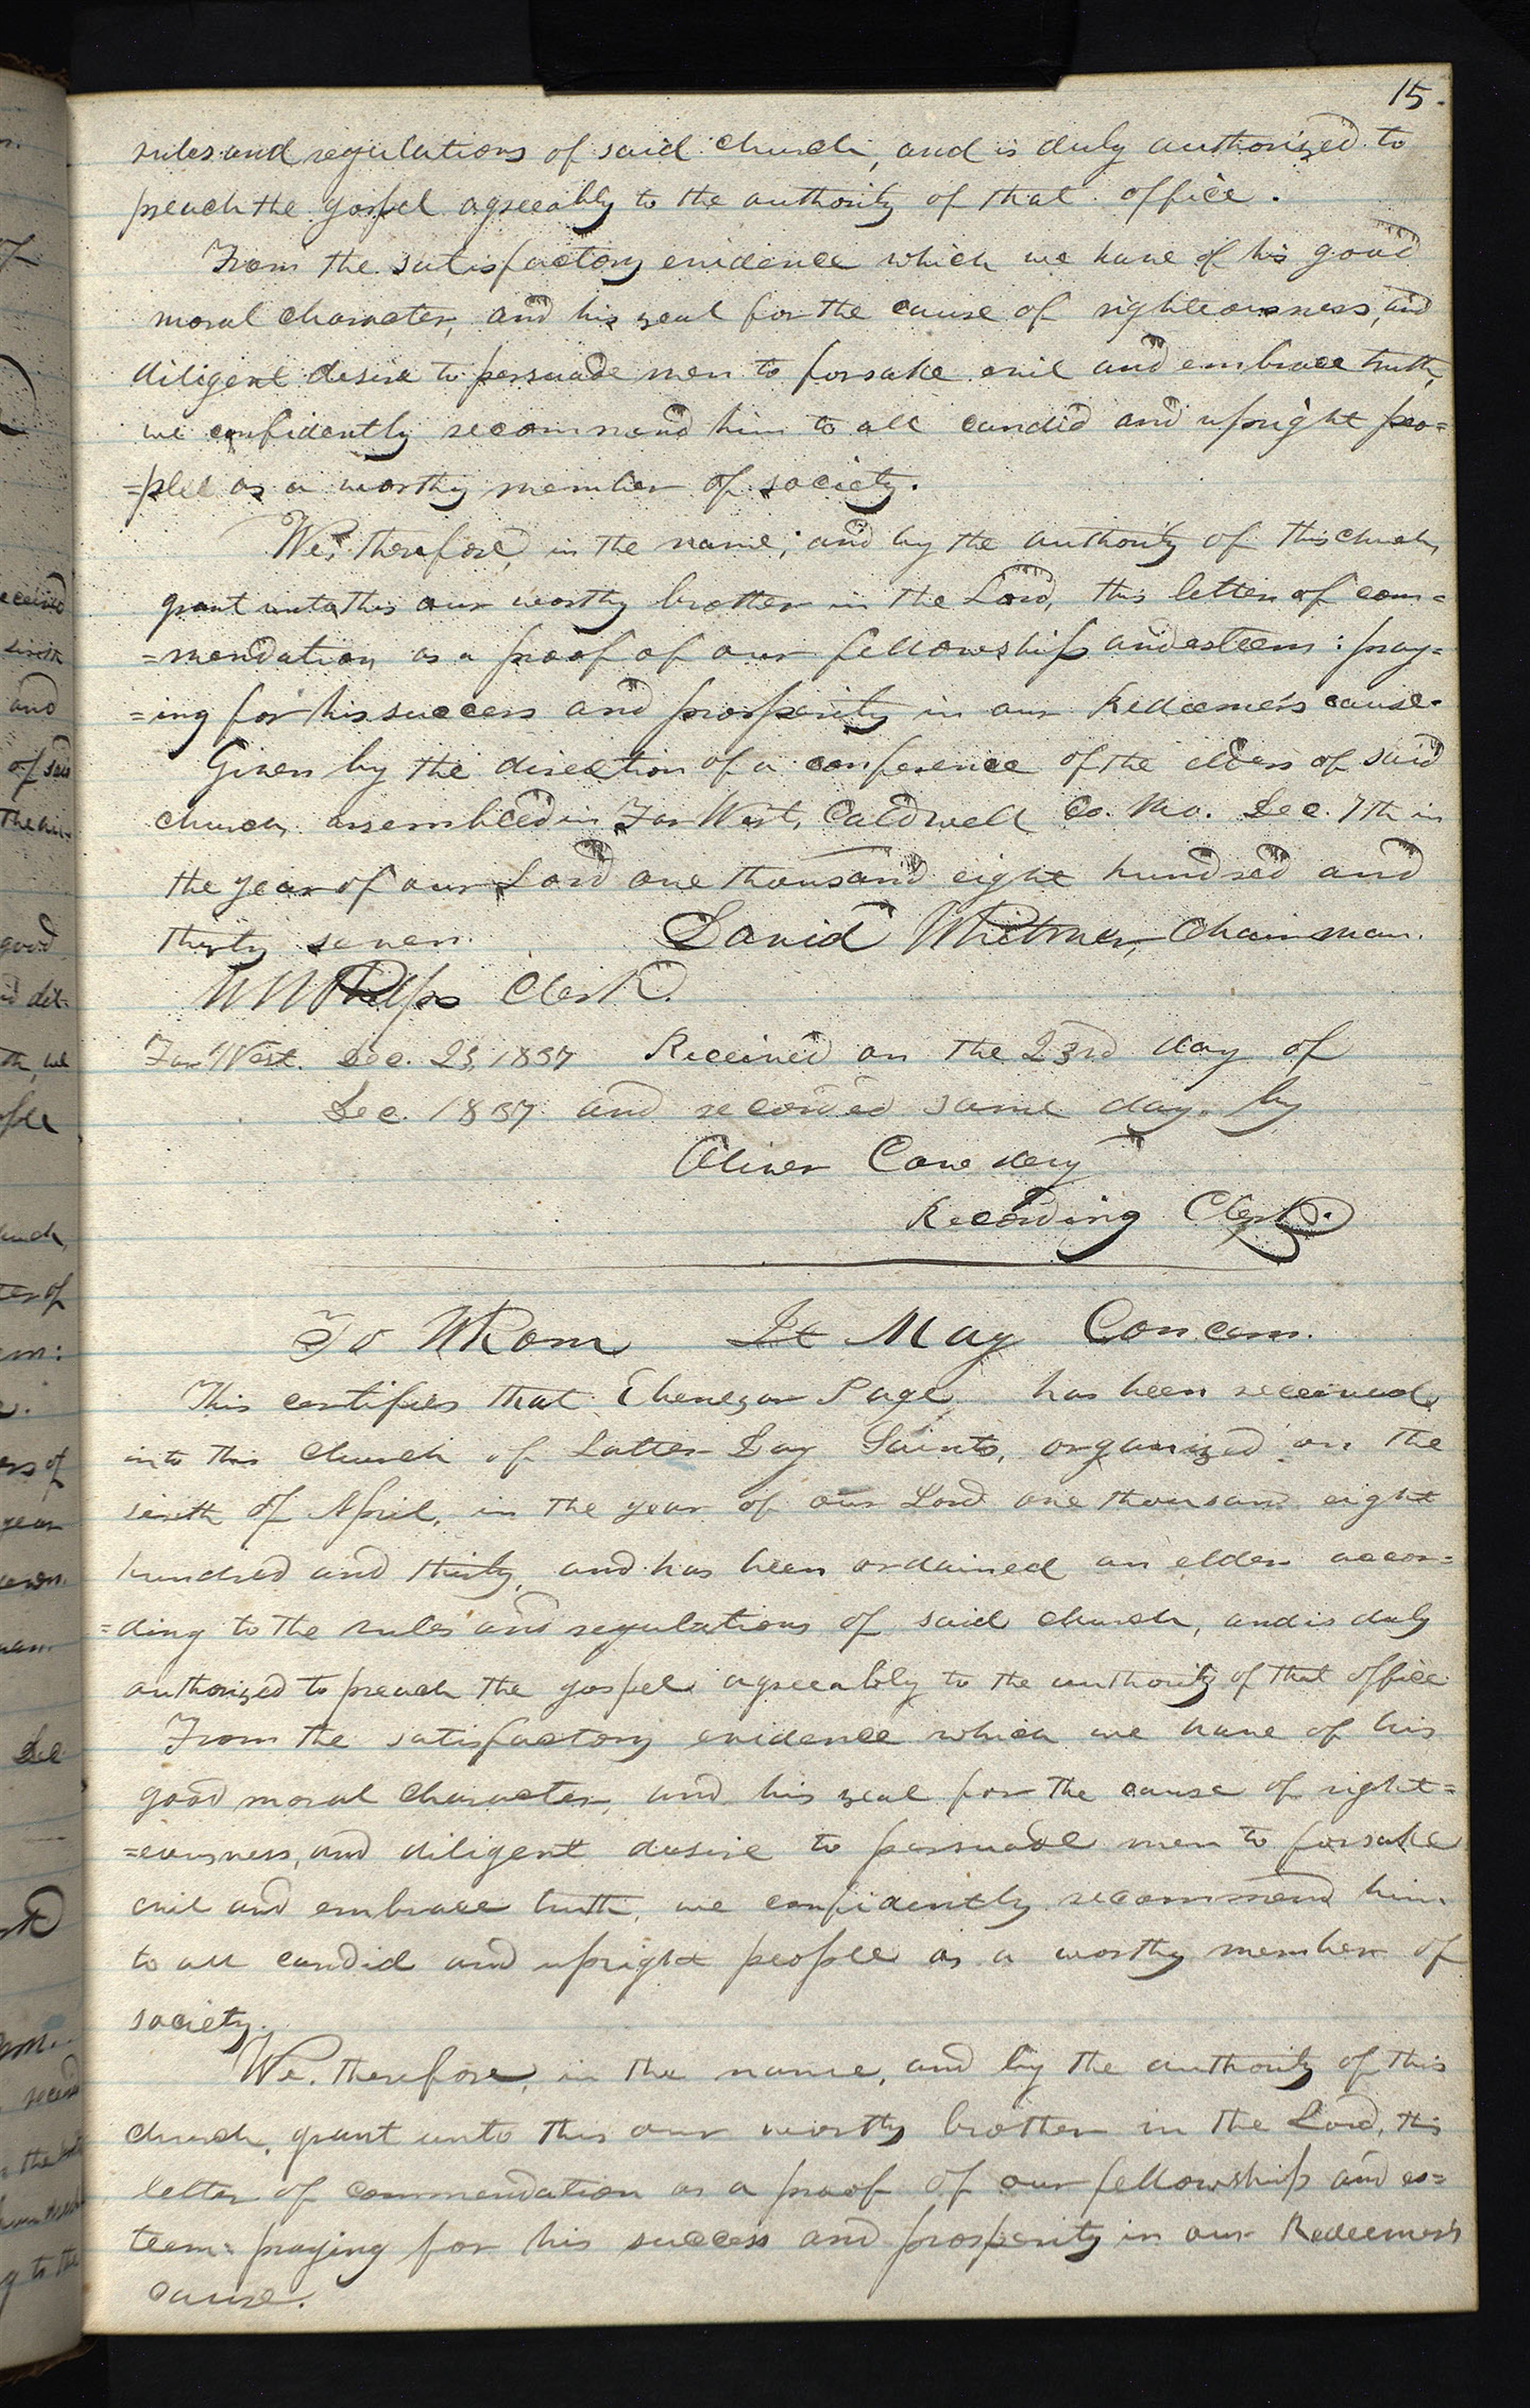 15.
rules and regulations of said church, and is duly authorized to
preach the gospel agreeably to the authority of that office.
From the satisfactory evidence which we have of his good
moral character, and his zeal for the cause of righteousness, and
diligent desire to persuade men to forsake evil and embrace truth,
we confidently recommend him to all candid and upright peo=
=ple as a worthy member of society.
We, therefore, in the name, and by the authority of this church,
grant unto this our worthy brother in the Lord, this letter of com=
=mendation as a proof of our fellowship and esteem: pray=
=ing for his success and prosperity in our Redeemer's cause.
Given by the direction of a conference of the elders of said
church, assembled in Far West, Caldwell Co. Mo. Dec. 7th in
the year of our Lord one thousand eight hundred and
thirty seven. David Whitmer, Chairman.
W W Phelps Clerk.
Far West. Dec. 23, 1837 Received on the 23rd day of
Dec. 1837 and recorded same day. by
Oliver Cowdery
Recording Clerk.
To Whom It May Concern.
This certifies that Ebenezar Page, has been received
into this church of Latter Day Saints, organized on the
sixth of April, in the year of our Lord one thousand eight
hundred and thirty, and has been ordained an elder accor=
=ding to the rules and regulations of said church, and is duly
authorized to preach the gospel agreeably to the authority of that office
From the satisfactory evidence which we have of his
good moral character, and his zeal for the cause of right=
=eousness, and diligent desire to persuade men to forsake
evil and embrace truth, we confidently recommend him
to all candid and upright people as a worthy member of
society.
We, therefore, in the name, and by the authority of this
church, grant unto this our worthy brother in the Lord, this
letter of commendation as a proof of our fellowship and es=
teem: praying for his success and prosperity in our Redeemer's
cause.